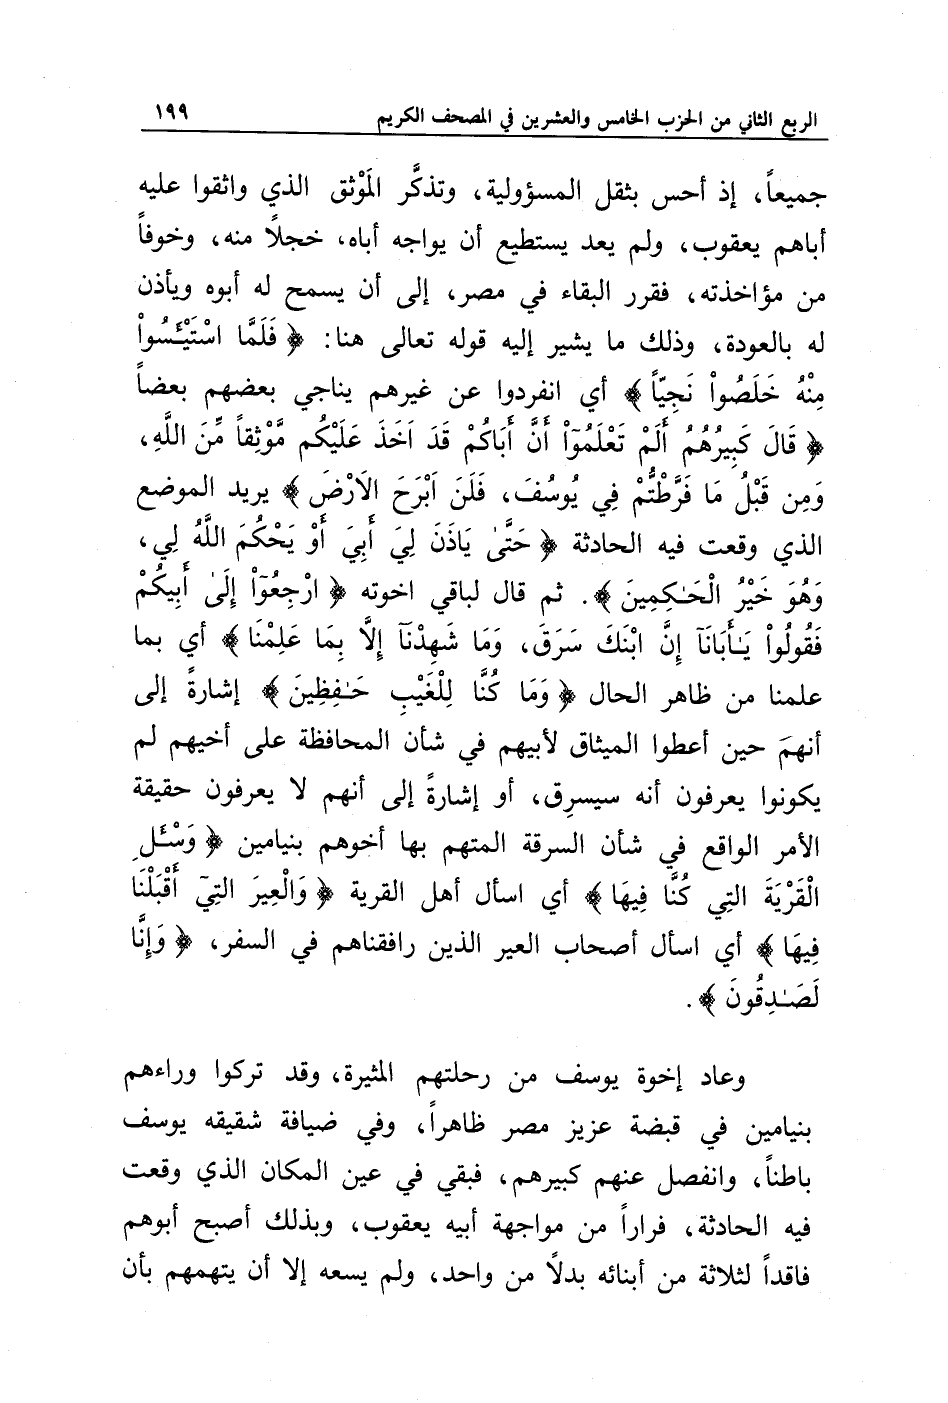 الربع الثاني من الحزب الخامس والعشرين في المصحف الكريم ١٩٩
جميعاً، إذ أحس بثقل المسؤولية، وتذكَّر المَوْثق الذي واثقوا عليه
أباهم يعقوب، ولم يعد يستطيع أن يواجه أباه، خجلًا منه، وخوفاً
من مؤاخذته، فقرر البقاء في مصر، إلى أن يسمح له أبوه ويأذن
له بالعودة، وذلك ما يشير إليه قوله تعالى هنا: ﴿ فَلَمَّا اسْتَيْـَٔسُواْ
مِنْهُ خَلَصُواْ نَجِيّاً ﴾ أي انفردوا عن غيرهم يناجي بعضهم بعضاً
﴿ قَالَ كَبِيرُهُمُ أَلَمْ تَعْلَمُوٓاْ أَنَّ أَبَاكُمْ قَدَ اَخَذَ عَلَيْكُم مَّوْثِقاً مِّنَ اللَّهِ،
وَمِن قَبْلُ مَا فَرَّطْتُّمْ فِي يُوسُفَ، فَلَنَ اَبْرَحَ الَارْضَ ﴾ يريد الموضع
الذي وقعت فيه الحادثة ﴿ حَتَّىٰ يَاذَنَ لِيَ أَبِيَ أَوْ يَحْكُمَ اللَّهُ لِي،
وَهُوَ خَيْرُ الْحَـٰكِمِينَ ﴾. ثم قال لباقي اخوته ﴿ ارْجِعُوٓاْ إِلَىٰ أَبِيكُمْ
فَقُولُواْ يَـٰأَبَانَآ إِنَّ ابْنَكَ سَرَقَ، وَمَا شَهِدْنَآ إِلَّا بِمَا عَلِمْنَا ﴾ أي بما
علمنا من ظاهر الحال ﴿ وَمَا كُنَّا لِلْغَيْبِ حَـٰفِظِينَ ﴾ إشارةً إلى
أنهمَ حين أعطوا الميثاق لأبيهم في شأن المحافظة على أخيهم لم
يكونوا يعرفون أنه سيسرِق، أو إشارةً إلى أنهم لا يعرفون حقيقة
الأمر الواقع في شأن السرقة المتهم بها أخوهم بنيامين ﴿ وَسْـَٔلِ
الْقَرْيَةَ التِي كُنَّا فِيهَا ﴾ أي اسأل أهل القرية ﴿ وَالْعِيرَ التِيٓ أَقْبَلْنَا
فِيهَا ﴾ أي اسأل أصحاب العير الذين رافقناهم في السفر، ﴿ وَإِنَّا
لَصَـٰدِقُونَ ﴾.
وعاد إخوة يوسف من رحلتهم المثيرة، وقد تركوا وراءهم
بنيامين في قبضة عزيز مصر ظاهراً، وفي ضيافة شقيقه يوسف
باطناً، وانفصل عنهم كبيرهم، فبقي في عين المكان الذي وقعت
فيه الحادثة، فراراً من مواجهة أبيه يعقوب، وبذلك أصبح أبوهم
فاقداً لثلاثة من أبنائه بدلًا من واحد، ولم يسعه إلا أن يتهمهم بأن